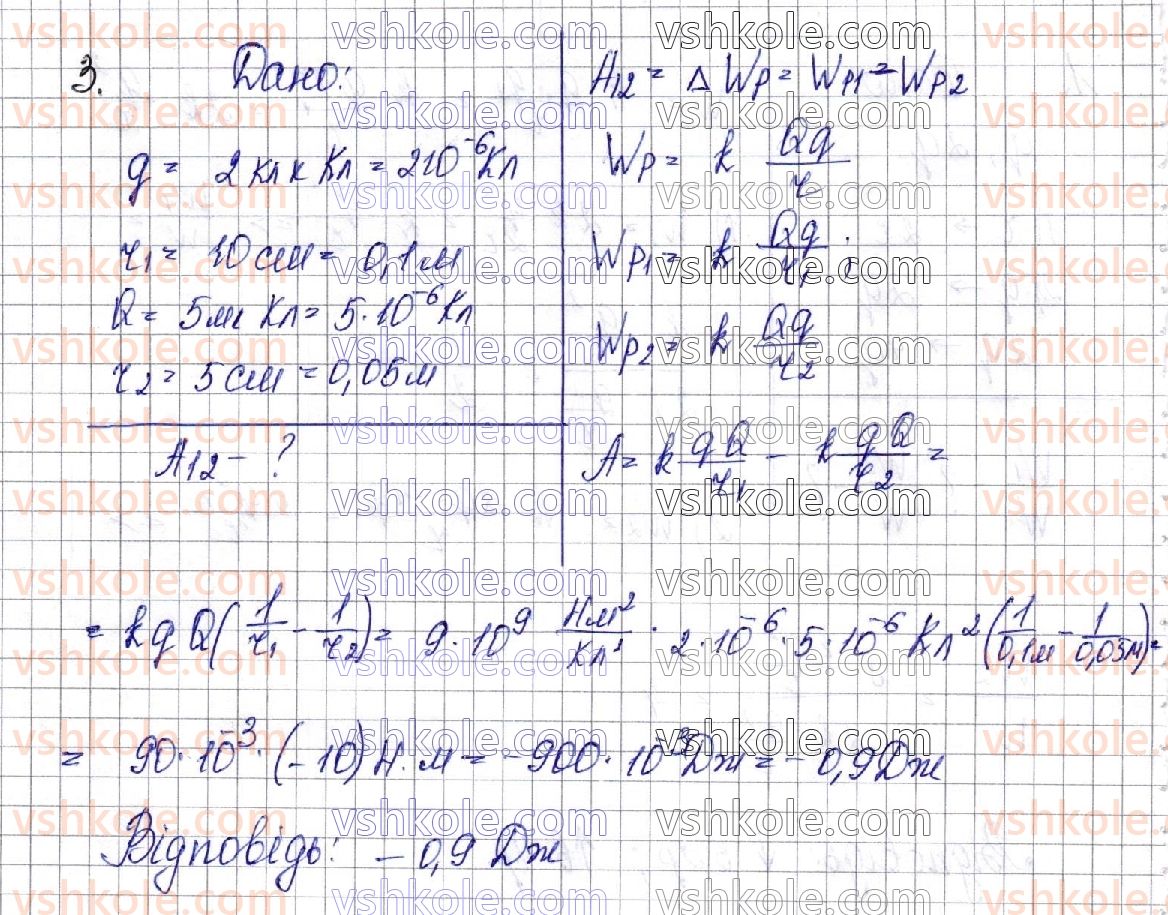 vshkole.com vshkole.com vshkole.com vshkole.com
3. Дано:
q = 2 кл к Кл = 2·10⁻⁶ Кл
r₁ = 10 см = 0,1 м
Q = 5 мк Кл = 5·10⁻⁶ Кл
r₂ = 5 см = 0,05 м
A₁₂ - ?
A₁₂ = Δ Wp = Wp₁ - Wp₂
Wp = k Qq/r
Wp₁ = k Qq/r₁ ;
Wp₂ = k Qq/r₂
A = k qQ/r₁ - k qQ/r₂ =
= kqQ(1/r₁ - 1/r₂) = 9·10⁹ Нм²/Кл² · 2·10⁻⁶ · 5·10⁻⁶ Кл² (1/0,1м - 1/0,05м) =
= 90·10⁻³ · (-10) Н·м = -900·10⁻³ Дж = -0,9 Дж
Відповідь: -0,9 Дж